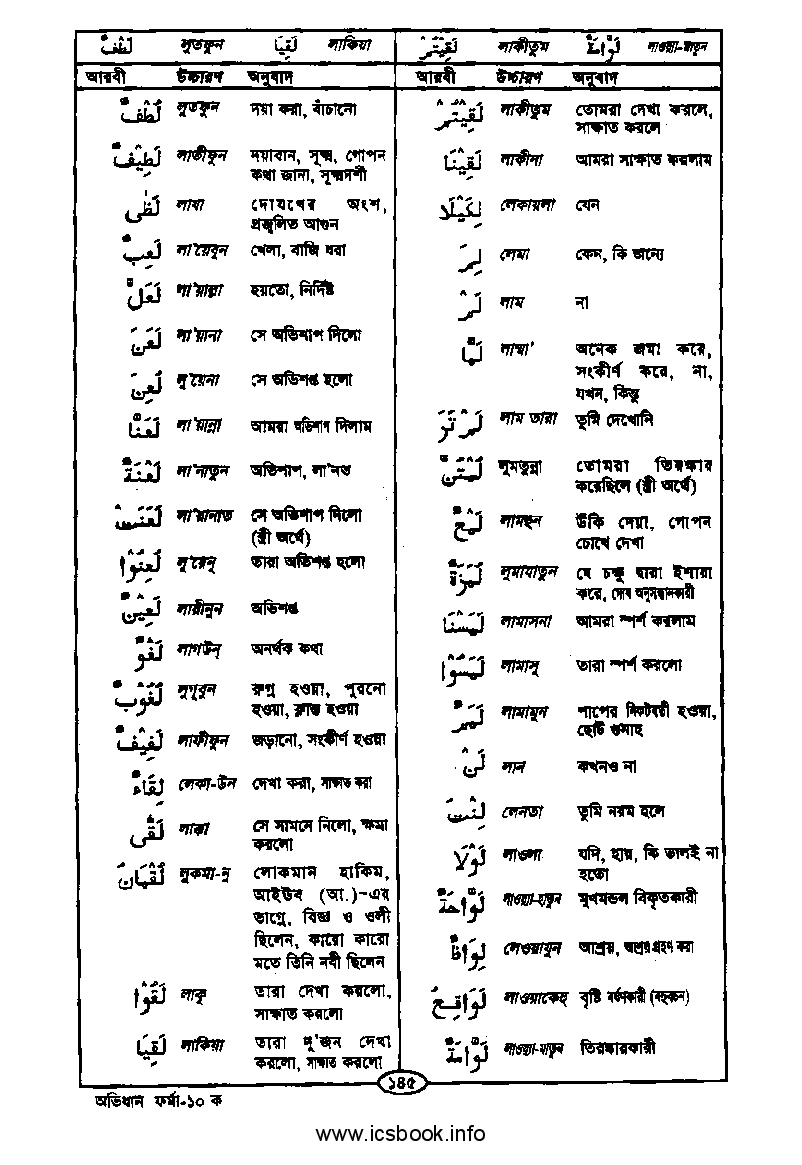 لُطْفٌ লুতফুন لَقِيَا লাকিয়া
আরবী উচ্চারণ অনুবাদ
لُطْفٌ লুতফুন দয়া করা, বাঁচানো
لَطِيْفٌ লাতীফুন দয়াবান, সূক্ষ্ম, গোপন
কথা জানা, সূক্ষ্মদর্শী
لَظٰى লাযা দোযখের অংশ,
প্রজ্বলিত আগুন
لَعِبٌ লা'য়েবুন খেলা, বাজি ধরা
لَعَلَّ লা'য়াল্লা হয়তো, নির্দিষ্ট
لَعَنَ লা'য়ানা সে অভিশাপ দিলো
لُعِنَ লু'য়েনা সে অভিশপ্ত হলো
لَعَنَّا লা'য়ান্না আমরা অভিশাপ দিলাম
لَعْنَةٌ লা'নাতুন অভিশাপ, লা'নত
لَعَنَتْ লা'য়ানাত সে অভিশাপ দিলো
(স্ত্রী অর্থে)
لُعِنُوْا লু'য়েনূ তারা অভিশপ্ত হলো
لَعِيْنٌ লায়ীনুন অভিশপ্ত
لَغْوٌ লাগউন্ অনর্থক কথা
لُغُوْبٌ লুগূবুন রুগ্ন হওয়া, পুরনো
হওয়া, ক্লান্ত হওয়া
لَفِيْفٌ লাফীফুন জড়ানো, সংকীর্ণ হওয়া
لِقَاءٌ লেকা-উন দেখা করা, সাক্ষাত করা
لَقّٰى লাক্বা সে সামনে নিলো, ক্ষমা
করলো
لُقْمَانُ লুকমা-নু লোকমান হাকিম,
আইউব (আ.)-এর
ভাগ্নে, বিজ্ঞ ও ওলী
ছিলেন, কারো কারো
মতে তিনি নবী ছিলেন
لَقُوْا লাকূ তারা দেখা করলো,
সাক্ষাত করলো
لَقِيَا লাকিয়া তারা দু'জন দেখা
করলো, সাক্ষাত করলো
لَقِيْتُمْ লাকীতুম لَوَّامَةٌ লাওয়া-মাতুন
আরবী উচ্চারণ অনুবাদ
لَقِيْتُمْ লাকীতুম তোমরা দেখা করলে,
সাক্ষাত করলে
لَقِيْنَا লাকীনা আমরা সাক্ষাত করলাম
لِكَيْلَا লেকায়লা যেন
لِمَ লেমা কেন, কি জন্যে
لَمْ লাম না
لَمَّا লাম্মা' অনেক জমা করে,
সংকীর্ণ করে, না,
যখন, কিন্তু
لَمْ تَرَ লাম তারা তুমি দেখোনি
لُمْتُنَّ লুমতুন্না তোমরা তিরস্কার
করেছিলে (স্ত্রী অর্থে)
لَمْحٌ লামহুন উঁকি দেয়া, গোপন
চোখে দেখা
لُمَزَةٌ লুমাযাতুন যে চক্ষু দ্বারা ইশারা
করে, দোষ অনুসন্ধানকারী
لَمَسْنَا লামাসনা আমরা স্পর্শ করলাম
لَمَسُوْا লামাসূ তারা স্পর্শ করলো
لَمَمٌ লামামুন পাপের নিকটবর্তী হওয়া,
ছোট গুনাহ
لَنْ লান কখনও না
لِنْتَ লেনতা তুমি নরম হলে
لَوْلَا লাওলা যদি, হায়, কি ভালই না
হতো
لَوَّاحَةٌ লাওয়া-হাতুন মুখমন্ডল বিকৃতকারী
لِوَاذًا লেওয়াযুন আশ্রয়, আশ্রয় গ্রহণ করা
لَوَاقِحُ লাওয়াকেহু বৃষ্টি বর্ষণকারী (বহুবচন)
لَوَّامَةٌ লাওয়া-মাতুন তিরস্কারকারী
১৪৫
অভিধান ফর্মা-১০ ক
www.icsbook.info